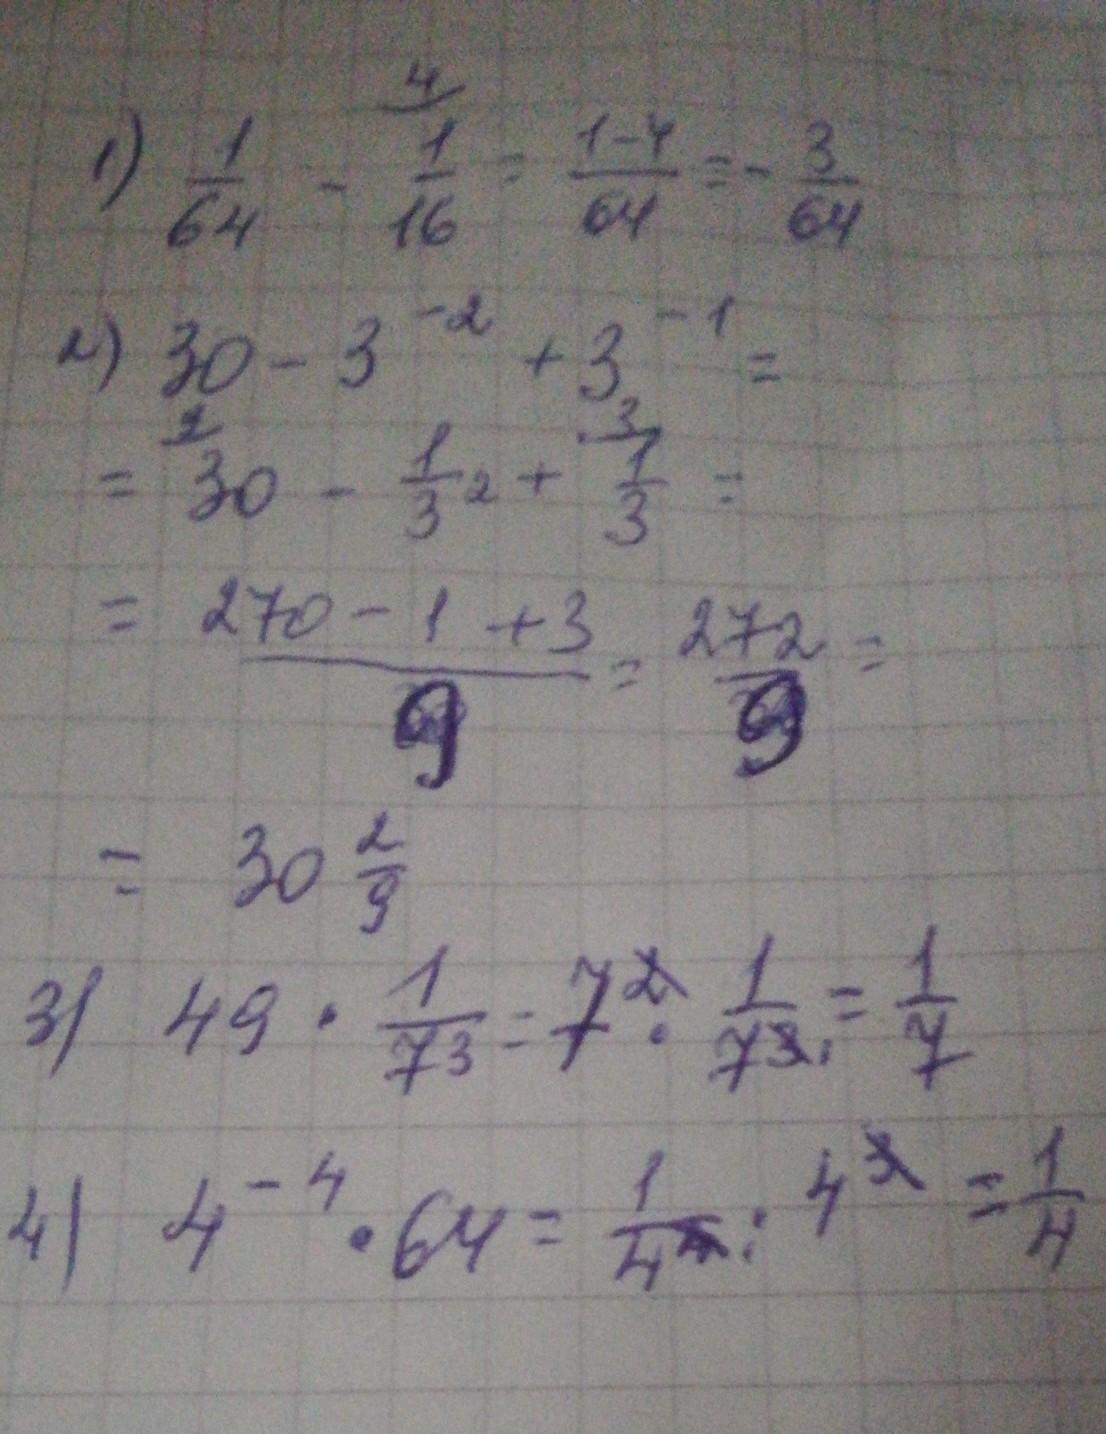 4
1) 1/64 - 1/16 = 1-4/64 = - 3/64
2) 30 - 3^-2 + 3^-1 =
9 3
= 30 - 1/3^2 + 1/3 =
= 270 - 1 + 3/9 = 272/9 =
= 30 2/9
3) 49 · 1/7^3 = 7^2 · 1/7^3 = 1/7
4) 4^-4 · 64 = 1/4^4 · 4^3 = 1/4